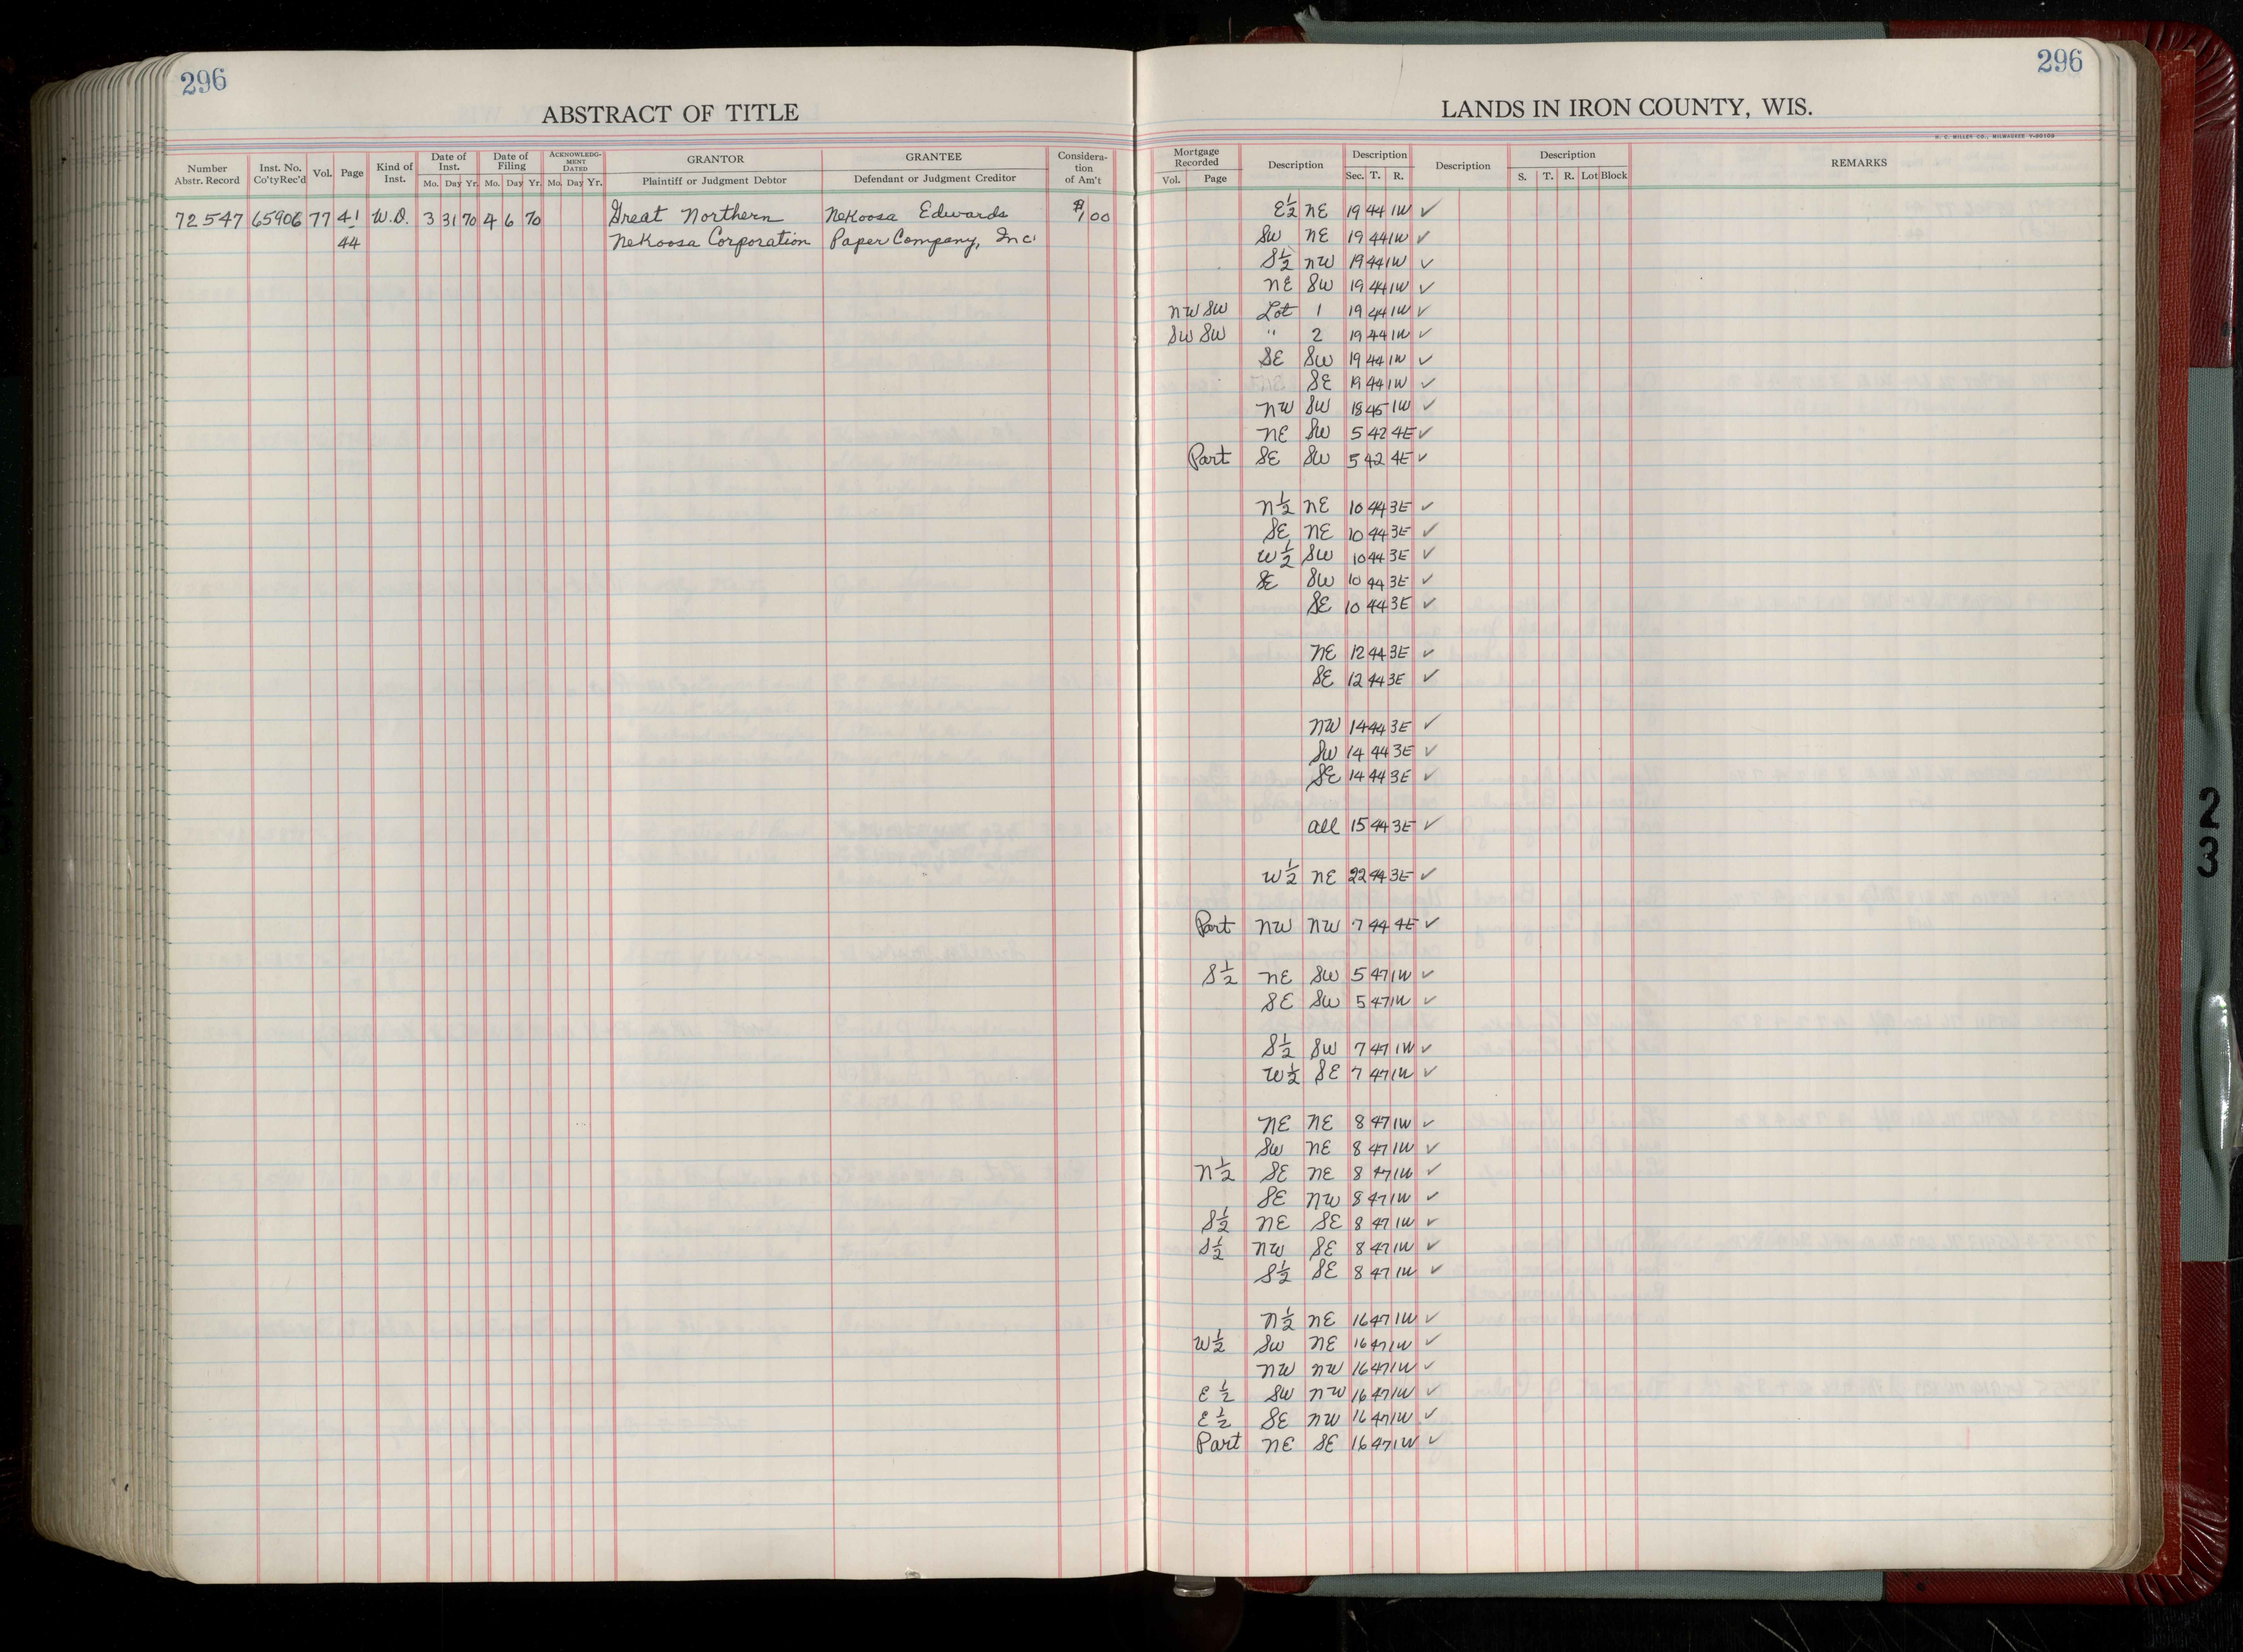 296
ABSTRACT OF TITLE
Number Abstr. Record Inst. No. Co'tyRec'd Vol. Page Kind of Inst. Date of Inst. Mo. Day Yr. Date of Filing Mo. Day Yr. ACKNOWLEDGMENT DATED Mo. Day Yr. GRANTOR Plaintiff or Judgment Debtor GRANTEE Defendant or Judgment Creditor Consideration of Am't
72547 65906 77 41 W.D. 3 31 70 4 6 70 Great Northern Nekoosa Edwards $1 00
44 Nekoosa Corporation Paper Company, Inc.
296
LANDS IN IRON COUNTY, WIS.
H. C. MILLER CO., MILWAUKEE Y-90109
Mortgage Recorded Vol. Page Description Description Sec. T. R. Description Description S. T. R. Lot Block REMARKS
E½ NE 19 44 1W ✓
SW NE 19 44 1W ✓
S½ NW 19 44 1W ✓
NE SW 19 44 1W ✓
NW SW Lot 1 19 44 1W ✓
SW SW " 2 19 44 1W ✓
SE SW 19 44 1W ✓
SE 19 44 1W ✓
NW SW 18 45 1W ✓
NE SW 5 42 4E ✓
Part SE SW 5 42 4E ✓
N½ NE 10 44 3E ✓
SE NE 10 44 3E ✓
W½ SW 10 44 3E ✓
SE SW 10 44 3E ✓
SE 10 44 3E ✓
NE 12 44 3E ✓
SE 12 44 3E ✓
NW 14 44 3E ✓
SW 14 44 3E ✓
SE 14 44 3E ✓
all 15 44 3E ✓
W½ NE 22 44 3E ✓
Part NW NW 7 44 4E ✓
S½ NE SW 5 47 1W ✓
SE SW 5 47 1W ✓
S½ SW 7 47 1W ✓
W½ SE 7 47 1W ✓
NE NE 8 47 1W ✓
SW NE 8 47 1W ✓
N½ SE NE 8 47 1W ✓
SE NW 8 47 1W ✓
S½ NE SE 8 47 1W ✓
S½ NW SE 8 47 1W ✓
S½ SE 8 47 1W ✓
N½ NE 16 47 1W ✓
W½ SW NE 16 47 1W ✓
NW NW 16 47 1W ✓
E½ SW NW 16 47 1W ✓
E½ SE NW 16 47 1W ✓
Part NE SE 16 47 1W ✓
23